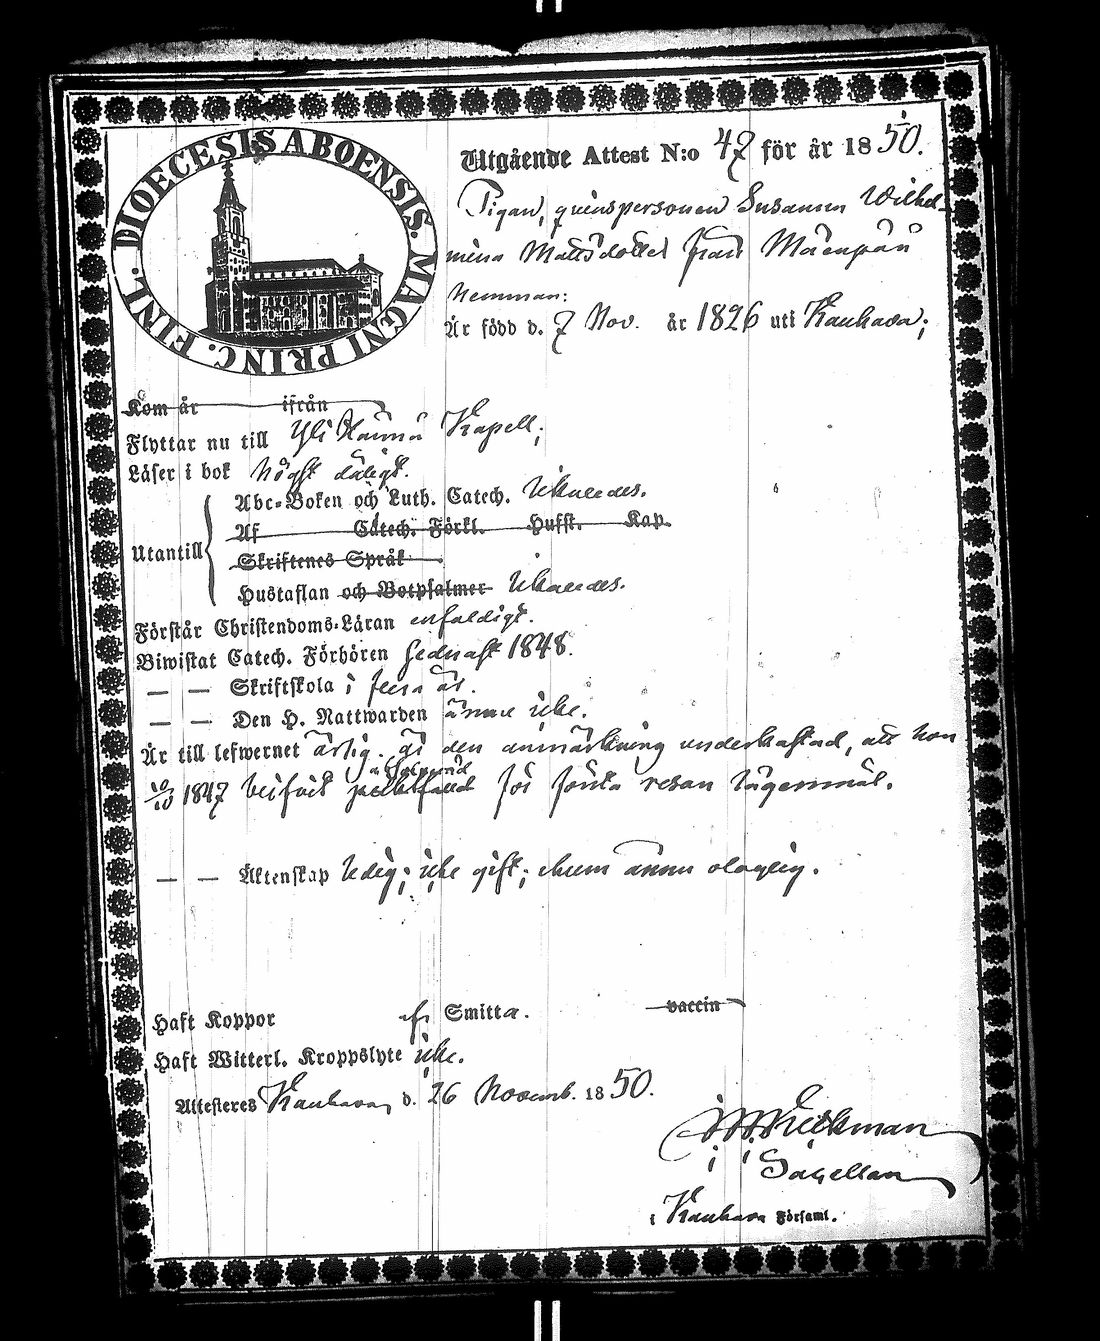 DIOECESIS ABOENSIS. MAGNI PRINC. FINL.
Utgående Attest N:o 47 för år 1850.
Pigan, qvinspersonen Susanna Wilhel-
mina Mattsdotter från Mäenpää
Hemman:
Är född d. 7 Nov. år 1826 uti Kauhava;
Kom år ifrån
Flyttar nu till Yli Härmä Kapell;
Läser i bok högst dåligt.
Utantill
Abc-Boken och Luth. Catech.
Af Catech. Förkl. Hufst. Kap.
Skriftenes Språk
Hustaflan och Botpsalmer
Förstår Christendoms-Läran enfaldigt.
Biwistat Catech. Förhören sednast 1848.
— — Skriftskola i flera år.
— — Den H. Nattwarden ännu icke.
Är till lefwernet ärlig. är den anmärkning underkastad, att hon
1847 för första resan lägersmål.
— — Äktenskap ledig; icke gift; ännu olaglig.
Haft Koppor af Smitta. vaccin
Haft Witterl. Kroppslyte icke.
Attesteres Kauhava, d. 26 Novemb. 1850.
i Kauhava Församl.